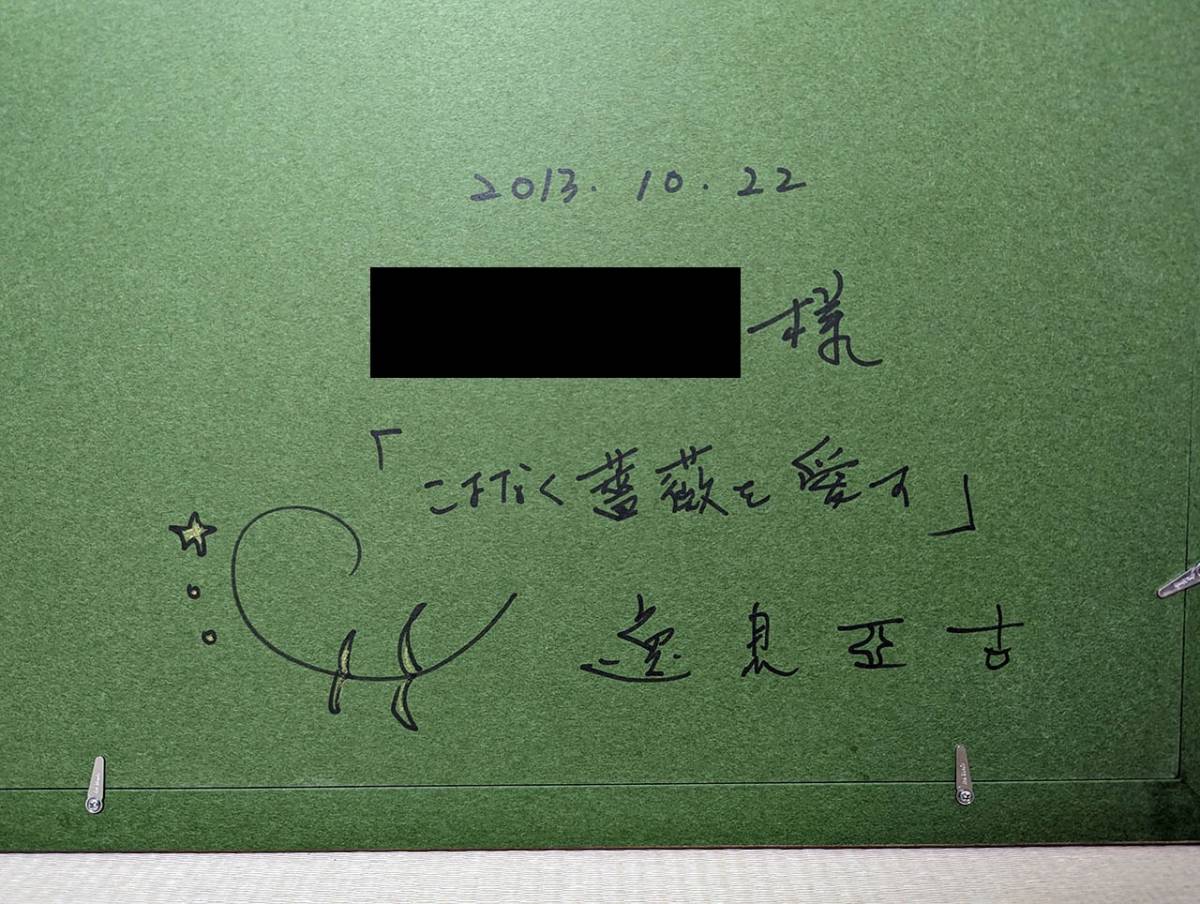 2013. 10. 22
様
「こよなく薔薇を愛す」